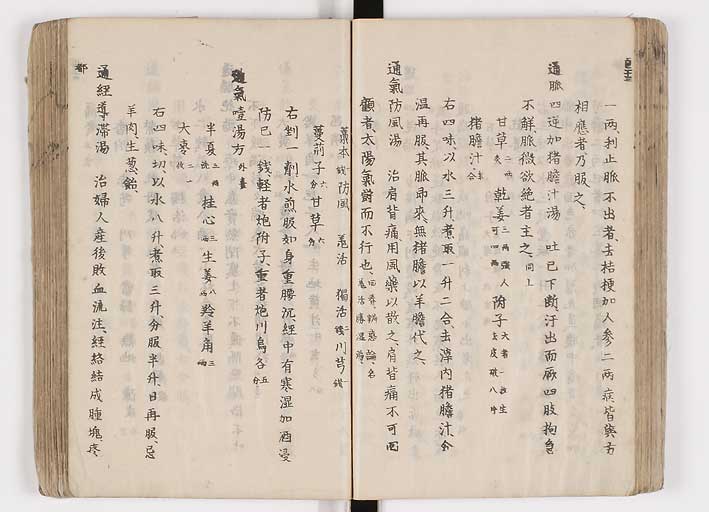 一兩利止脈不出者去桔梗加人參二兩病皆與方
相應者乃服之
通脈四逆加猪膽汁湯　吐已下斷汗出而厥四肢拘急
不解脈微欲絶者主之 同上
甘草 二兩炙 乾姜 三兩強人可四兩 附子 大者一枚生去皮破八片
猪膽汁 半合
右四味以水三升煮取一升二合去滓内猪膽汁分
温再服其脈即來無猪膽以羊膽代之
通氣防風湯　治肩背痛用風藥以散之肩背痛不可回
顧者太陽氣欝而不行也
藁本 防風 羌活 獨活 川芎
蔓荊子 甘草
右剉一劑水煎服如身重腰沉經中有寒濕加酒浸
防已一錢輕者炮附子重者炮川烏各五分
通氣噎湯方 外臺
半夏 三兩洗 桂心 三兩 生姜 八兩 羚羊角 三兩
大棗
右四味切以水八升煮取三升分服半升日再服忌
羊肉生葱飴
通經導滯湯　治婦人産後敗血流注經絡結成腫塊疼
都